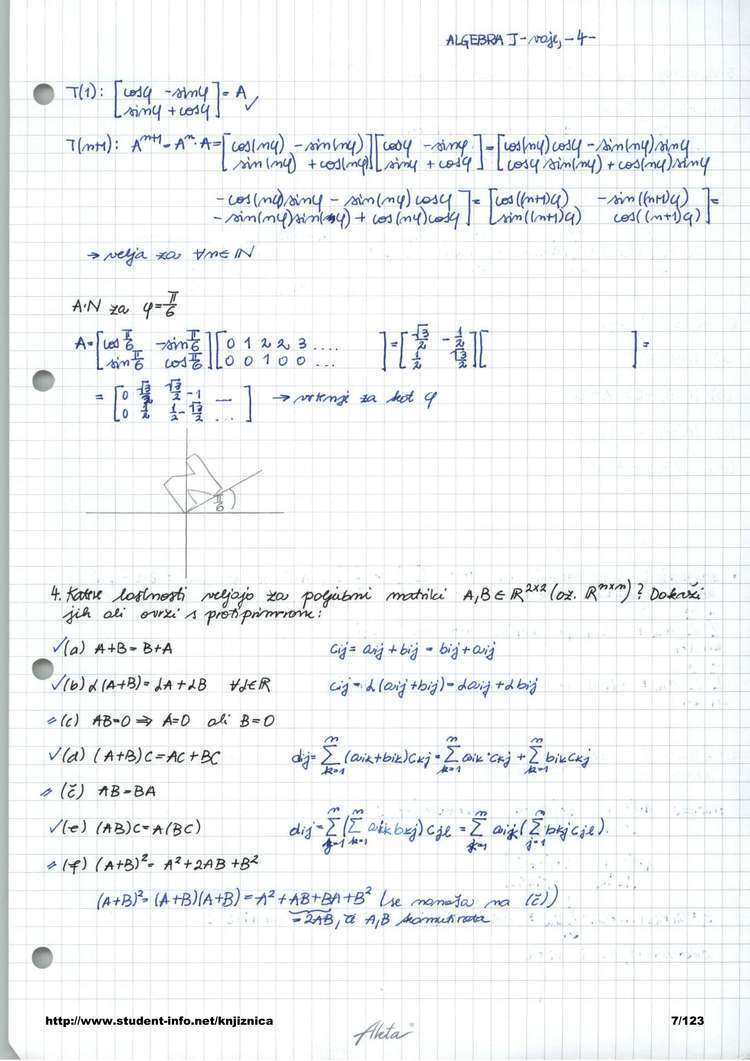 ALGEBRA I - vaje, -4-
T(1): [cosφ -sinφ; sinφ +cosφ] = A ✓
T(n+1): Aⁿ⁺¹ = Aⁿ·A = [cos(nφ) -sin(nφ); sin(nφ) +cos(nφ)][cosφ -sinφ; sinφ +cosφ] = [cos(nφ)cosφ - sin(nφ)sinφ; cosφ sin(nφ) + cos(nφ)sinφ
-cos(nφ)sinφ - sin(nφ)cosφ; -sin(nφ)sin(φ) + cos(nφ)cosφ] = [cos((n+1)φ) -sin((n+1)φ); sin((n+1)φ) cos((n+1)φ)] =
→ velja za ∀n∈ℕ
A·N za φ=π/6
A = [cos π/6 -sin π/6; sin π/6 cos π/6][0 1 2 2 3 ....; 0 0 1 0 0 ...] = [√3/2 -1/2; 1/2 √3/2][ ] =
= [0 √3/2 √3/2 - 1 —; 0 1/2 1/2 - √3/2 ...] → vrtenje za kot φ
π/6
4. Katere lastnosti veljajo za poljubni matriki A,B ∈ ℝ²ˣ² (oz. ℝⁿˣⁿ)? Dokaži
jih ali ovrzi s protiprimerom:
✓(a) A+B = B+A cij = aij + bij = bij + aij
✓(b) α(A+B) = αA + αB ∀α∈ℝ cij = α(aij+bij) = αaij + αbij
(c) AB=0 ⇒ A=0 ali B=0
✓(d) (A+B)C = AC + BC dij = Σⁿₖ₌₁ (aik+bik)ckj = Σⁿₖ₌₁ aik·ckj + Σⁿₖ₌₁ bikckj
(č) AB = BA
✓(e) (AB)C = A(BC)
(f) (A+B)² = A² + 2AB + B²
(A+B)² = (A+B)(A+B) = A² + AB + BA + B² (se nanaša na (č))
= 2AB, če A,B komutirata
http://www.student-info.net/knjiznica 7/123
Akta